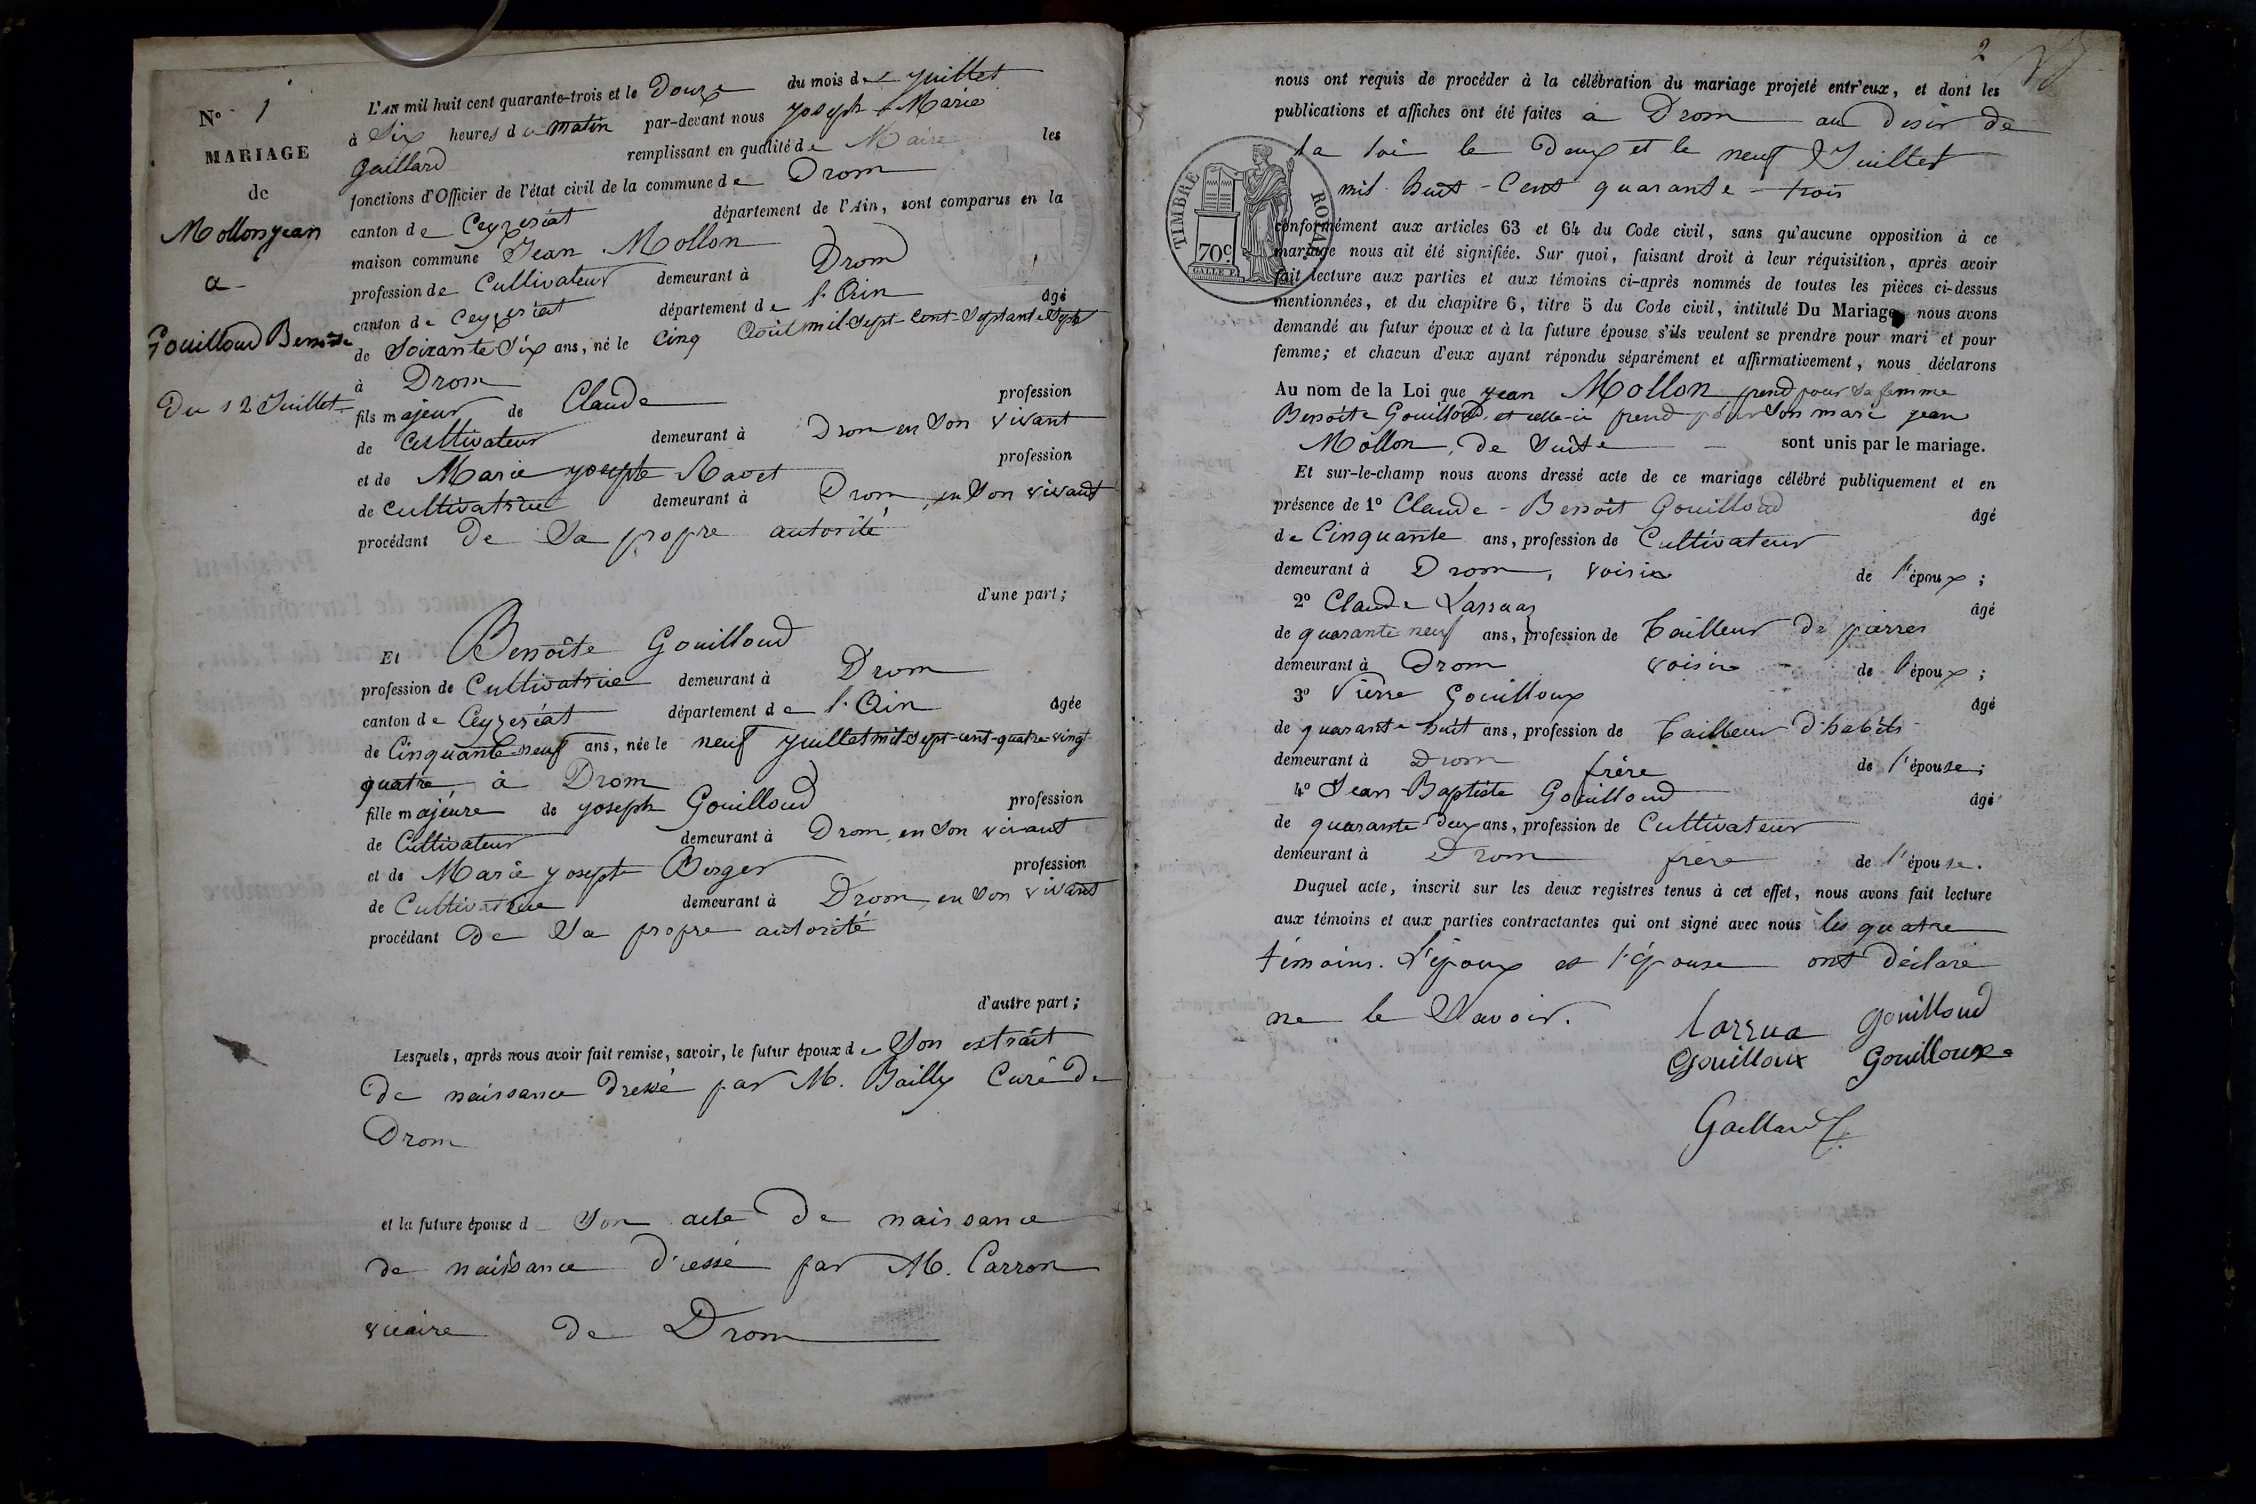 N° 1
MARIAGE
de
Mollon jean
a
Gouilloud Benoite
Du 12 Juillet
L'AN mil huit cent quarante-trois et le Douze du mois de Juillet
à Six heures du matin par-devant nous Joseph Marie
Gaillard remplissant en qualité de Maire les
fonctions d'Officier de l'état civil de la commune de Drom
canton de Ceyzeriat département de l'Ain, sont comparus en la
maison commune Jean Mollon
profession de Cultivateur demeurant à Drom
canton de Ceyzeriat département de l'Ain âgé
de Soixante Six ans, né le cinq Aout mil-Sept-Cent-Septante Sept
à Drom
fils majeur de Claude profession
de Cultivateur demeurant à Drom en Son vivant
et de Marie josephte Ravet profession
de cultivatrice demeurant à Drom, en Son vivant
procédant De Sa propre autorité
d'une part;
Et Benoîte Gouilloud
profession de Cultivatrice demeurant à Drom
canton de Ceyzeréat département de l'Ain âgée
de Cinquante-neuf ans, née le neuf juillet mil-Sept-cent-quatre-vingt
quatre à Drom
fille majeure de joseph Gouilloud profession
de Cultivateur demeurant à Drom, en Son vivant
et de Marie josephte Berger profession
de Cultivatrice demeurant à Drom, en Son vivant
procédant De Sa propre autorité
d'autre part;
Lesquels, après nous avoir fait remise, savoir, le futur époux de Son extrait
de naissance dressé par M. Bailly Curé de
Drom
et la future épouse d Son acte De naissance
de naissance dressé par M. Carron
vicaire de Drom
2
nous ont requis de procéder à la célébration du mariage projeté entr'eux, et dont les
publications et affiches ont été faites à Drom au désir de
la loi le Deux et le neuf Juillet
mil-huit-Cent quarante-trois
TIMBRE ROYAL
70 c.
conformément aux articles 63 et 64 du Code civil, sans qu'aucune opposition à ce
mariage nous ait été signifiée. Sur quoi, faisant droit à leur réquisition, après avoir
fait lecture aux parties et aux témoins ci-après nommés de toutes les pièces ci-dessus
mentionnées, et du chapitre 6, titre 5 du Code civil, intitulé Du Mariage, nous avons
demandé au futur époux et à la future épouse s'ils veulent se prendre pour mari et pour
femme; et chacun d'eux ayant répondu séparément et affirmativement, nous déclarons
Au nom de la Loi que jean Mollon prend pour Sa femme
Benoîte Gouilloud, et celle-ci prend pour Son mari jean
Mollon, de Suite sont unis par le mariage.
Et sur-le-champ nous avons dressé acte de ce mariage célébré publiquement et en
présence de 1° Claude-Benoît Gouilloud âgé
de Cinquante ans, profession de Cultivateur
demeurant à Drom, voisin de l'époux;
2° Claude âgé
de quarante neuf ans, profession de tailleur de pierres
demeurant à Drom voisin de l'époux;
3° Pierre Gouilloux âgé
de quarante huit ans, profession de tailleur d'habits
demeurant à Drom frère de l'épouse;
4° Jean-Baptiste Gouilloud âgé
de quarante Deux ans, profession de Cultivateur
demeurant à Drom frère de l'épouse.
Duquel acte, inscrit sur les deux registres tenus à cet effet, nous avons fait lecture
aux témoins et aux parties contractantes qui ont signé avec nous les quatre
témoins. L'époux et l'épouse ont déclaré
ne le Savoir.
Gouilloud
Gouilloux Gouilloux
Gaillard